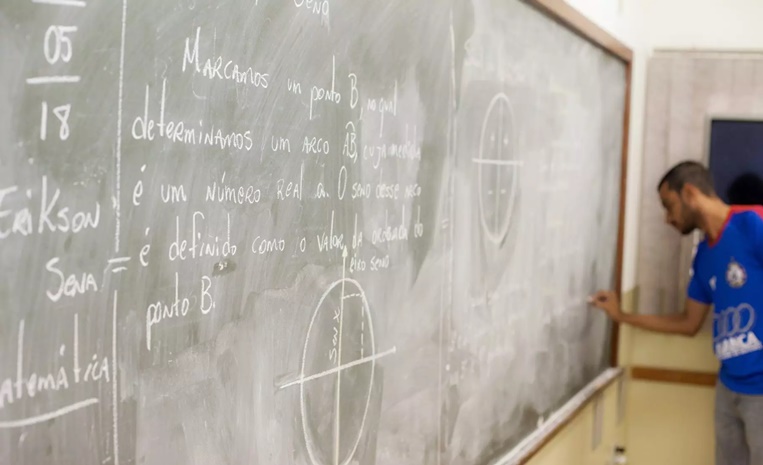 05
18
Erikson
Sena
Matemática
Sena
Marcamos um ponto B, no qual
determinamos um arco AB, cuja medida
é um número real a. O seno desse arco
é definido como o valor da ordenada do
ponto B.
eixo seno
sen x